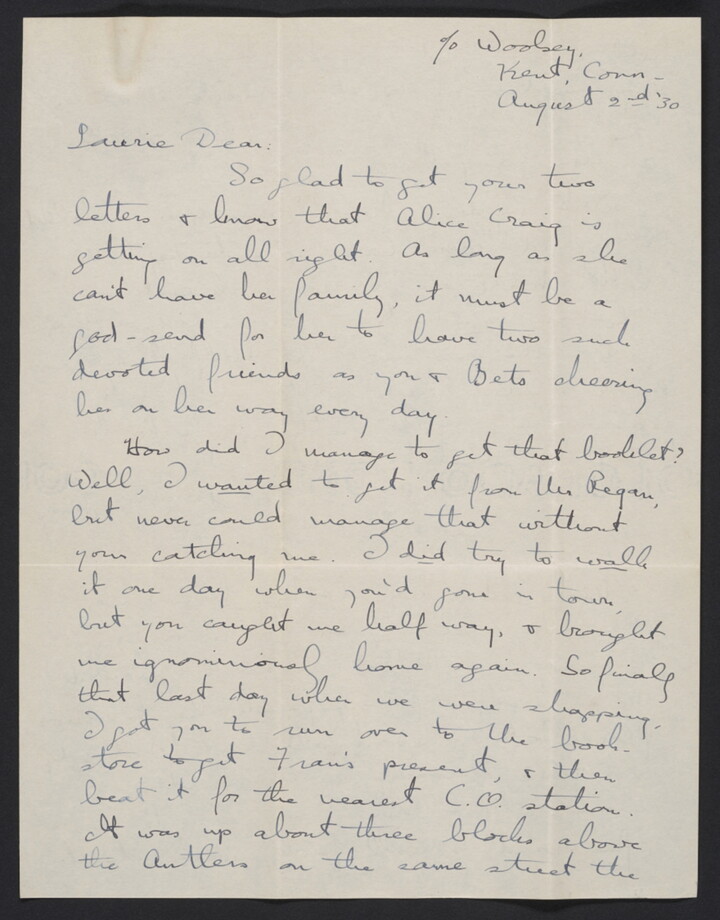 c/o Woolsey,
Kent, Conn-
August 2nd '30
Laurie Dear:
So glad to get your two
letters & know that Alice Craig is
getting on all right. As long as she
can't have her family, it must be a
god-send for her to have two such
devoted friends as you & Bets cheering
her on her way every day.
How did I manage to get that booklet?
Well, I wanted to get it from Mr Regan,
but never could manage that without
your catching me. I did try to walk
it one day when you'd gone in town,
but you caught me half way, & brought
me ignominiously home again. So finally
that last day when we were shopping,
I got you to run over to the book-
store to get Fran's present, & then
beat it for the nearest C.O. station.
It was up about three blocks above
the Antlers on the same street the